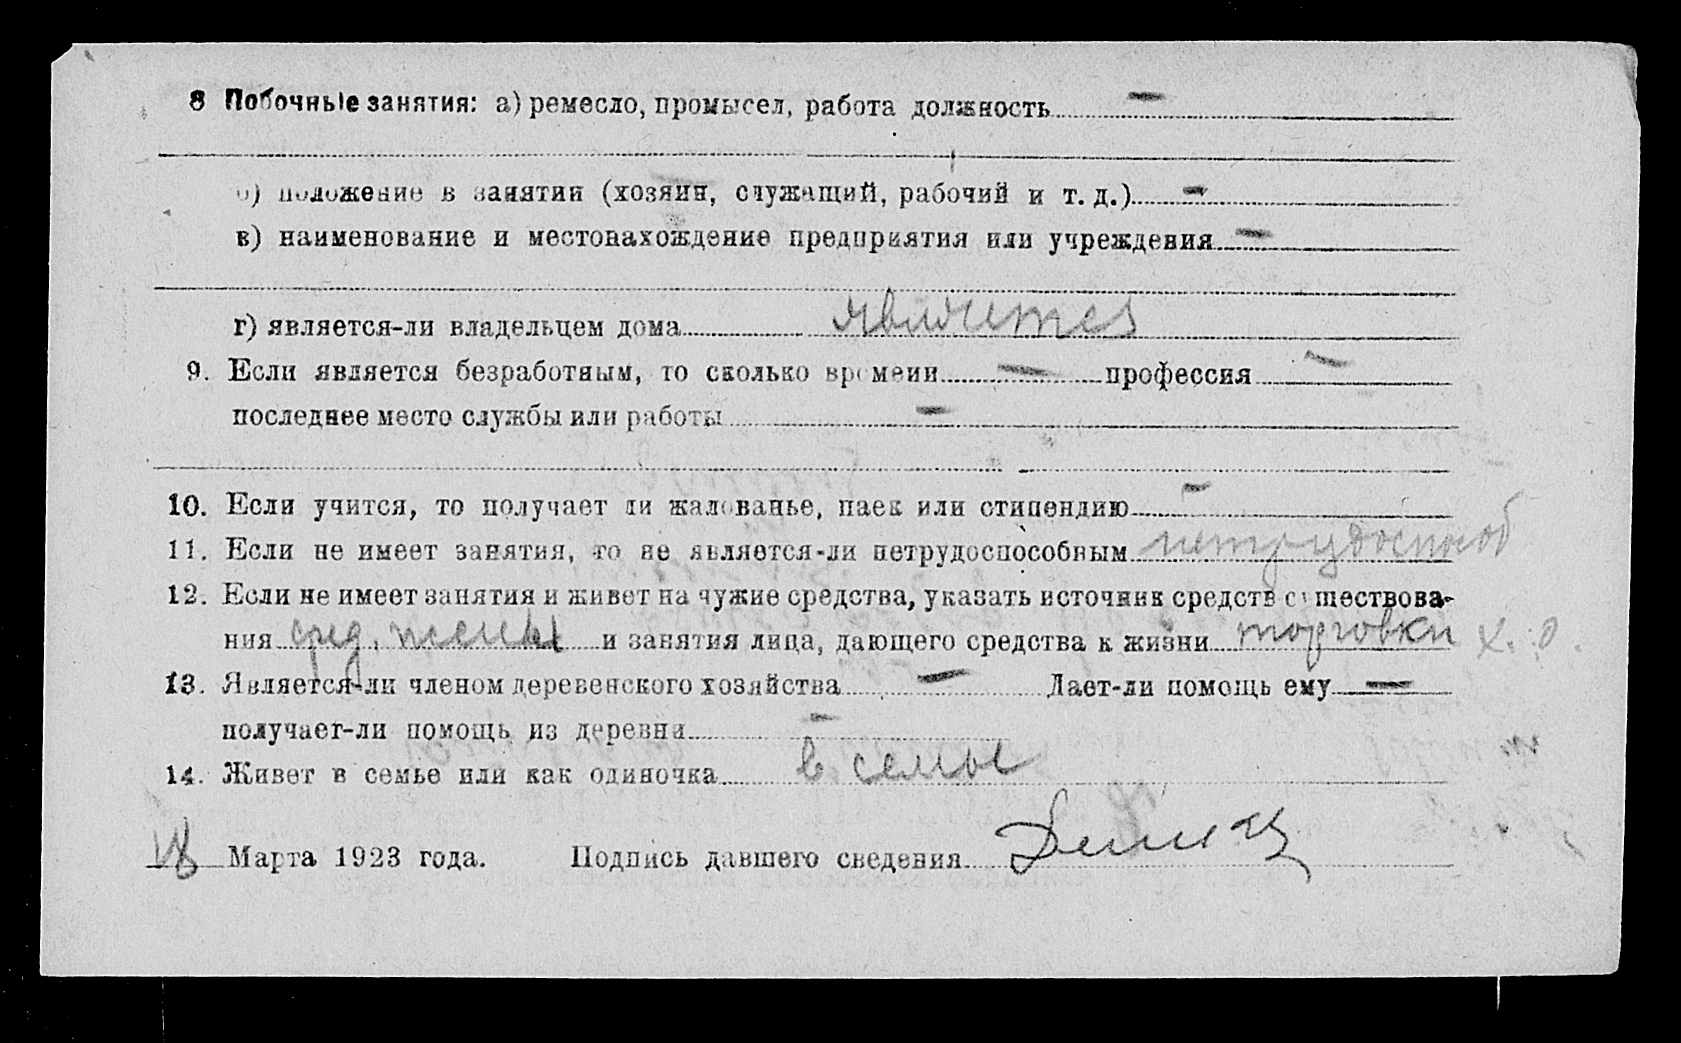 8 Побочные занятия: а) ремесло, промысел, работа должность —
б) положение в занятии (хозяин, служащий, рабочий и т. д.) —
в) наименование и местонахождение предприятия или учреждения —
г) является-ли владельцем дома является
9. Если является безработным, то сколько времени — профессия —
последнее место службы или работы —
10. Если учится, то получает ли жалованье, паек или стипендию —
11. Если не имеет занятия, то не является-ли нетрудоспособным нетрудоспособ
12. Если не имеет занятия и живет на чужие средства, указать источник средств существова-
ния сред. жены и занятия лица, дающего средства к жизни торговки х. о.
13. Является-ли членом деревенского хозяйства — Дает-ли помощь ему —
получает-ли помощь из деревни —
14. Живет в семье или как одиночка в семье
Марта 1923 года. Подпись давшего сведения